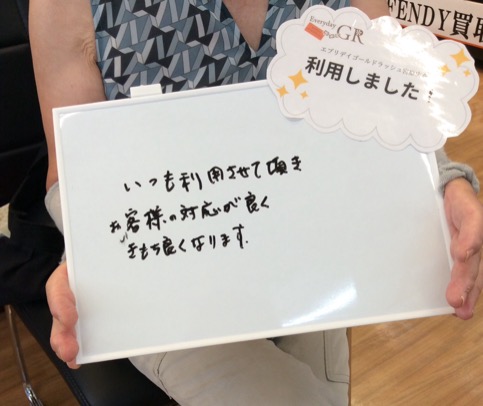 FENDY買取
Everyday
Gold
GR
エブリデイゴールドラッシュに
利用しました！
いつも利用させて頂き
お客様の対応が良く
きもち良くなります.